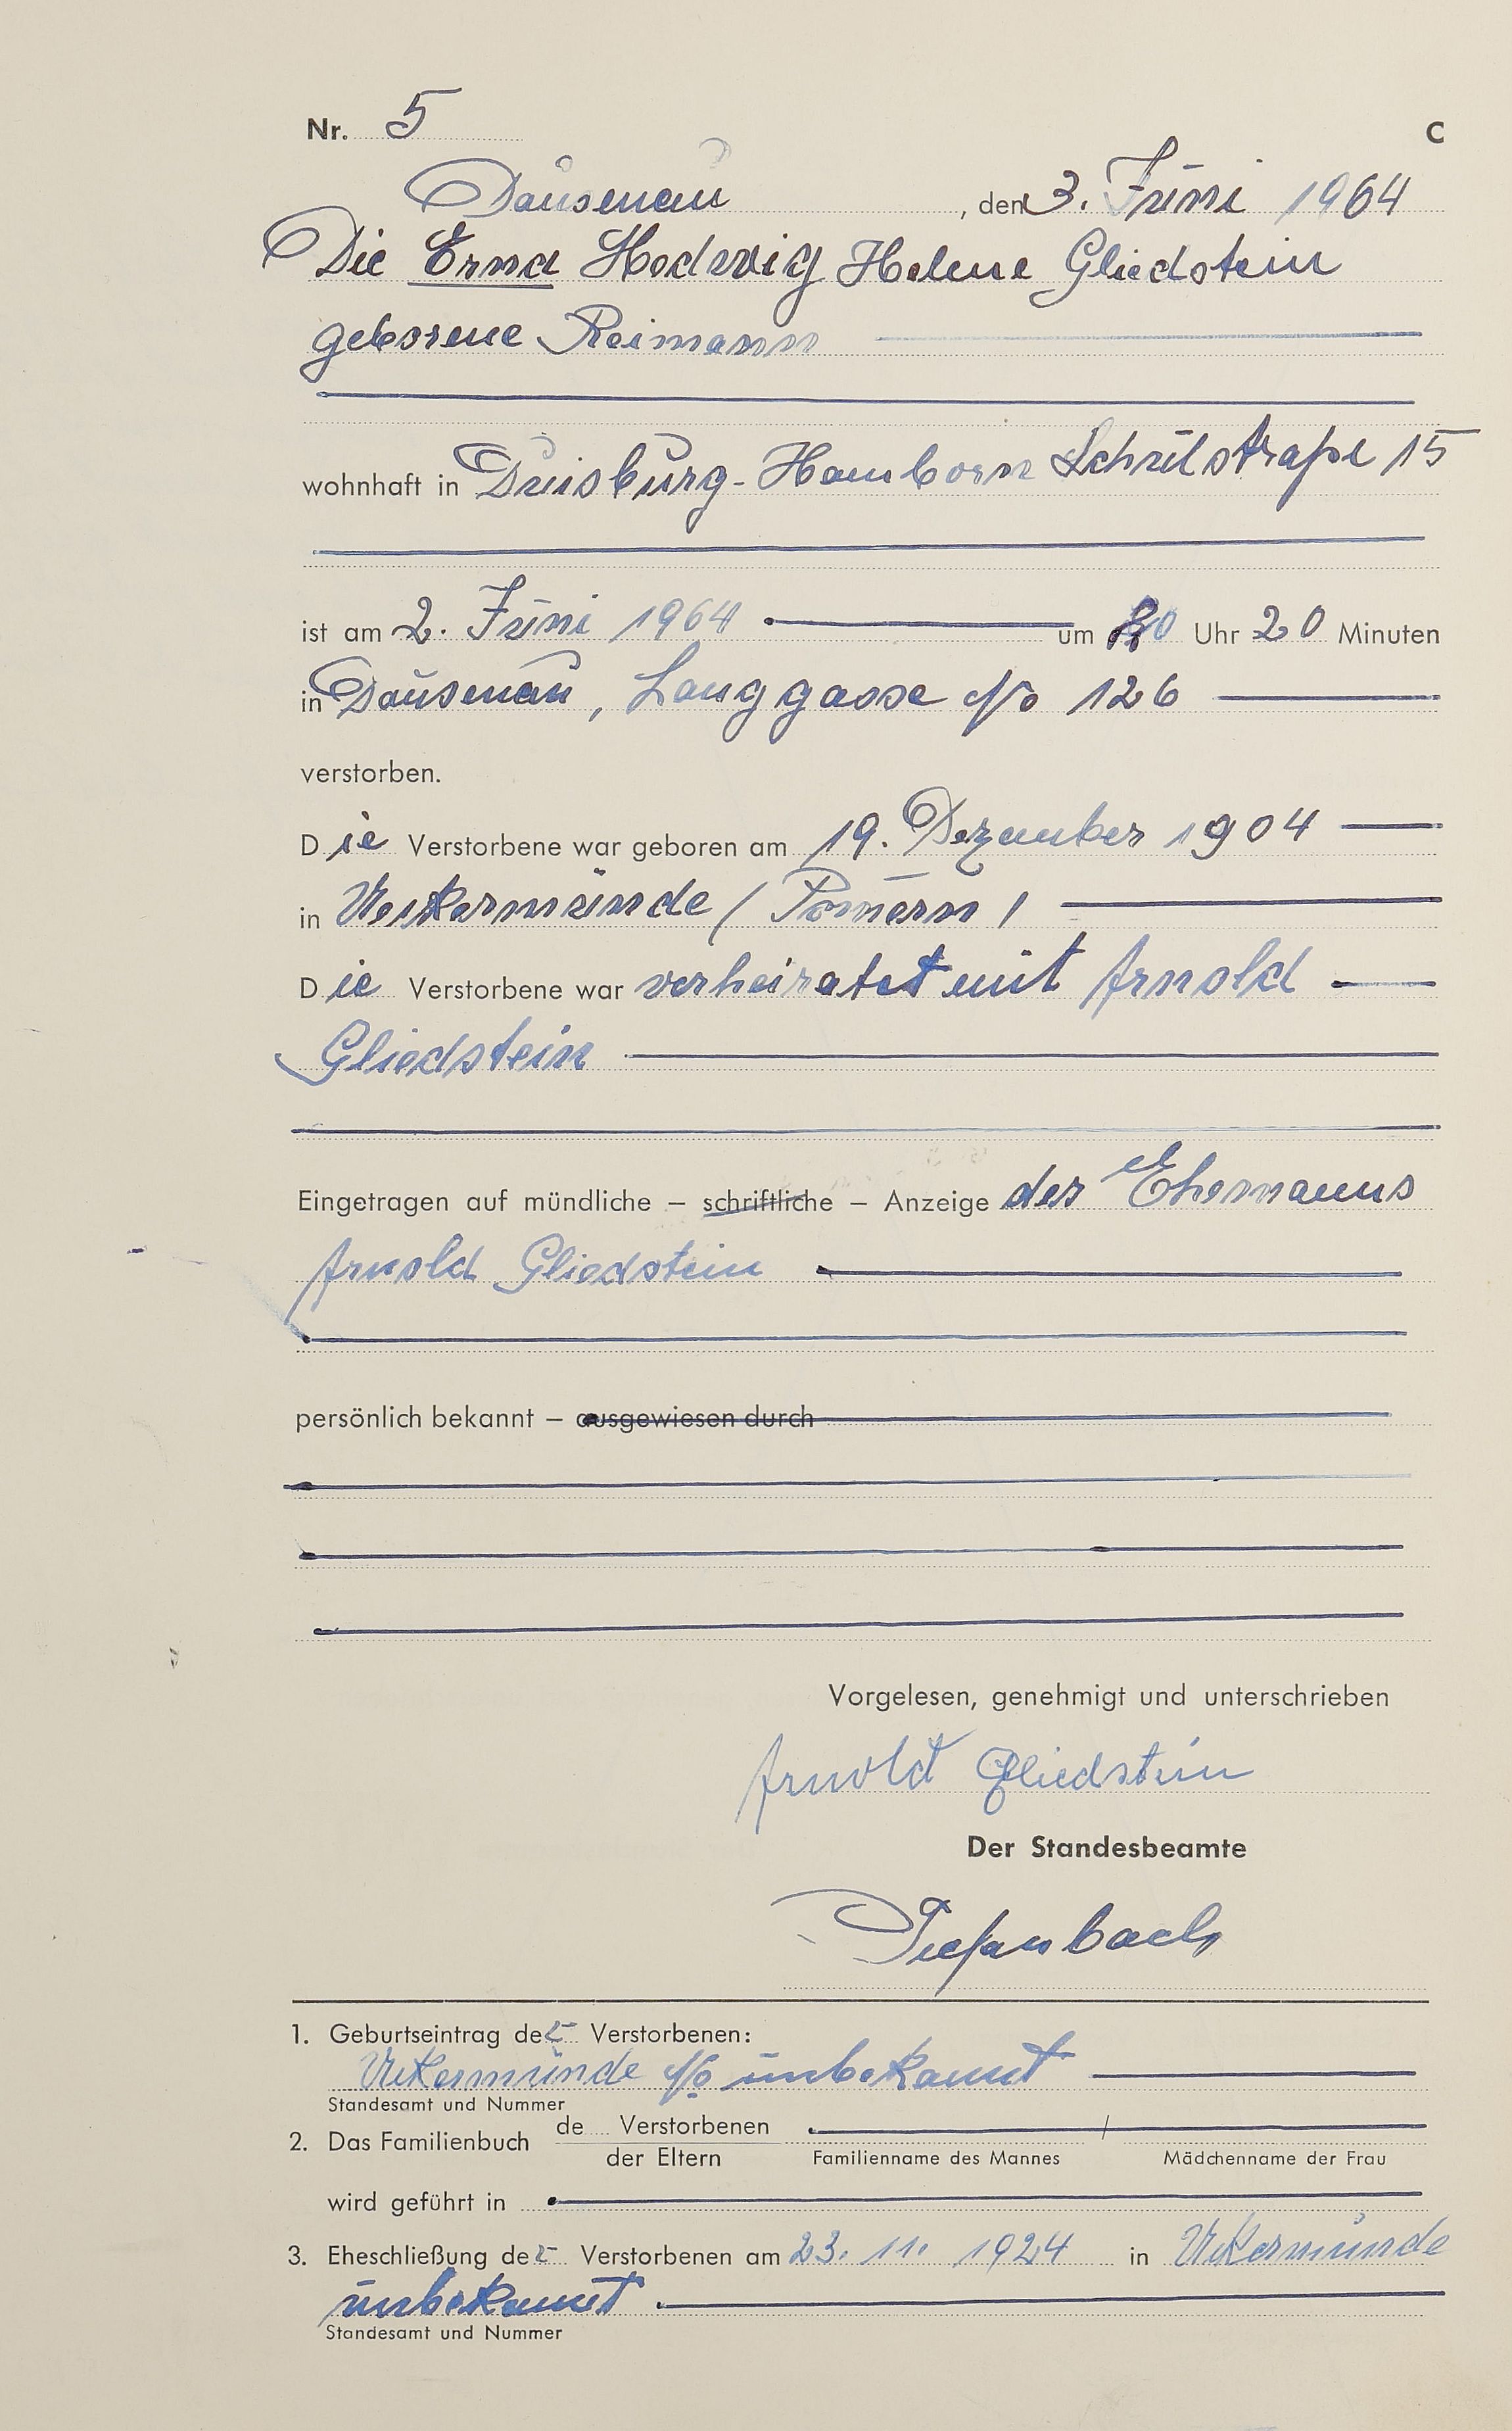 Nr. 5 C
Dausenau, den 3. Juni 1964
Die Erna Hedwig Helene Gliedstein
geborene Reimann
wohnhaft in Duisburg-Hamborn Schulstraße 15
ist am 2. Juni 1964 um Uhr 20 Minuten
in Dausenau, Langgasse No 126
verstorben.
Die Verstorbene war geboren am 19. Dezember 1904
in Ueckermünde (Pomern)
Die Verstorbene war verheiratet mit Arnold
Gliedstein
Eingetragen auf mündliche – schriftliche – Anzeige des Ehemanns
Arnold Gliedstein
persönlich bekannt – ausgewiesen durch
Vorgelesen, genehmigt und unterschrieben
Arnold Gliedstein
Der Standesbeamte
Diefenbach
1. Geburtseintrag der Verstorbenen:
Uekermünde No unbekannt
Standesamt und Nummer
2. Das Familienbuch de Verstorbenen
der Eltern Familienname des Mannes / Mädchenname der Frau
wird geführt in
3. Eheschließung der Verstorbenen am 23. 11. 1924 in Uekermünde
unbekannt
Standesamt und Nummer